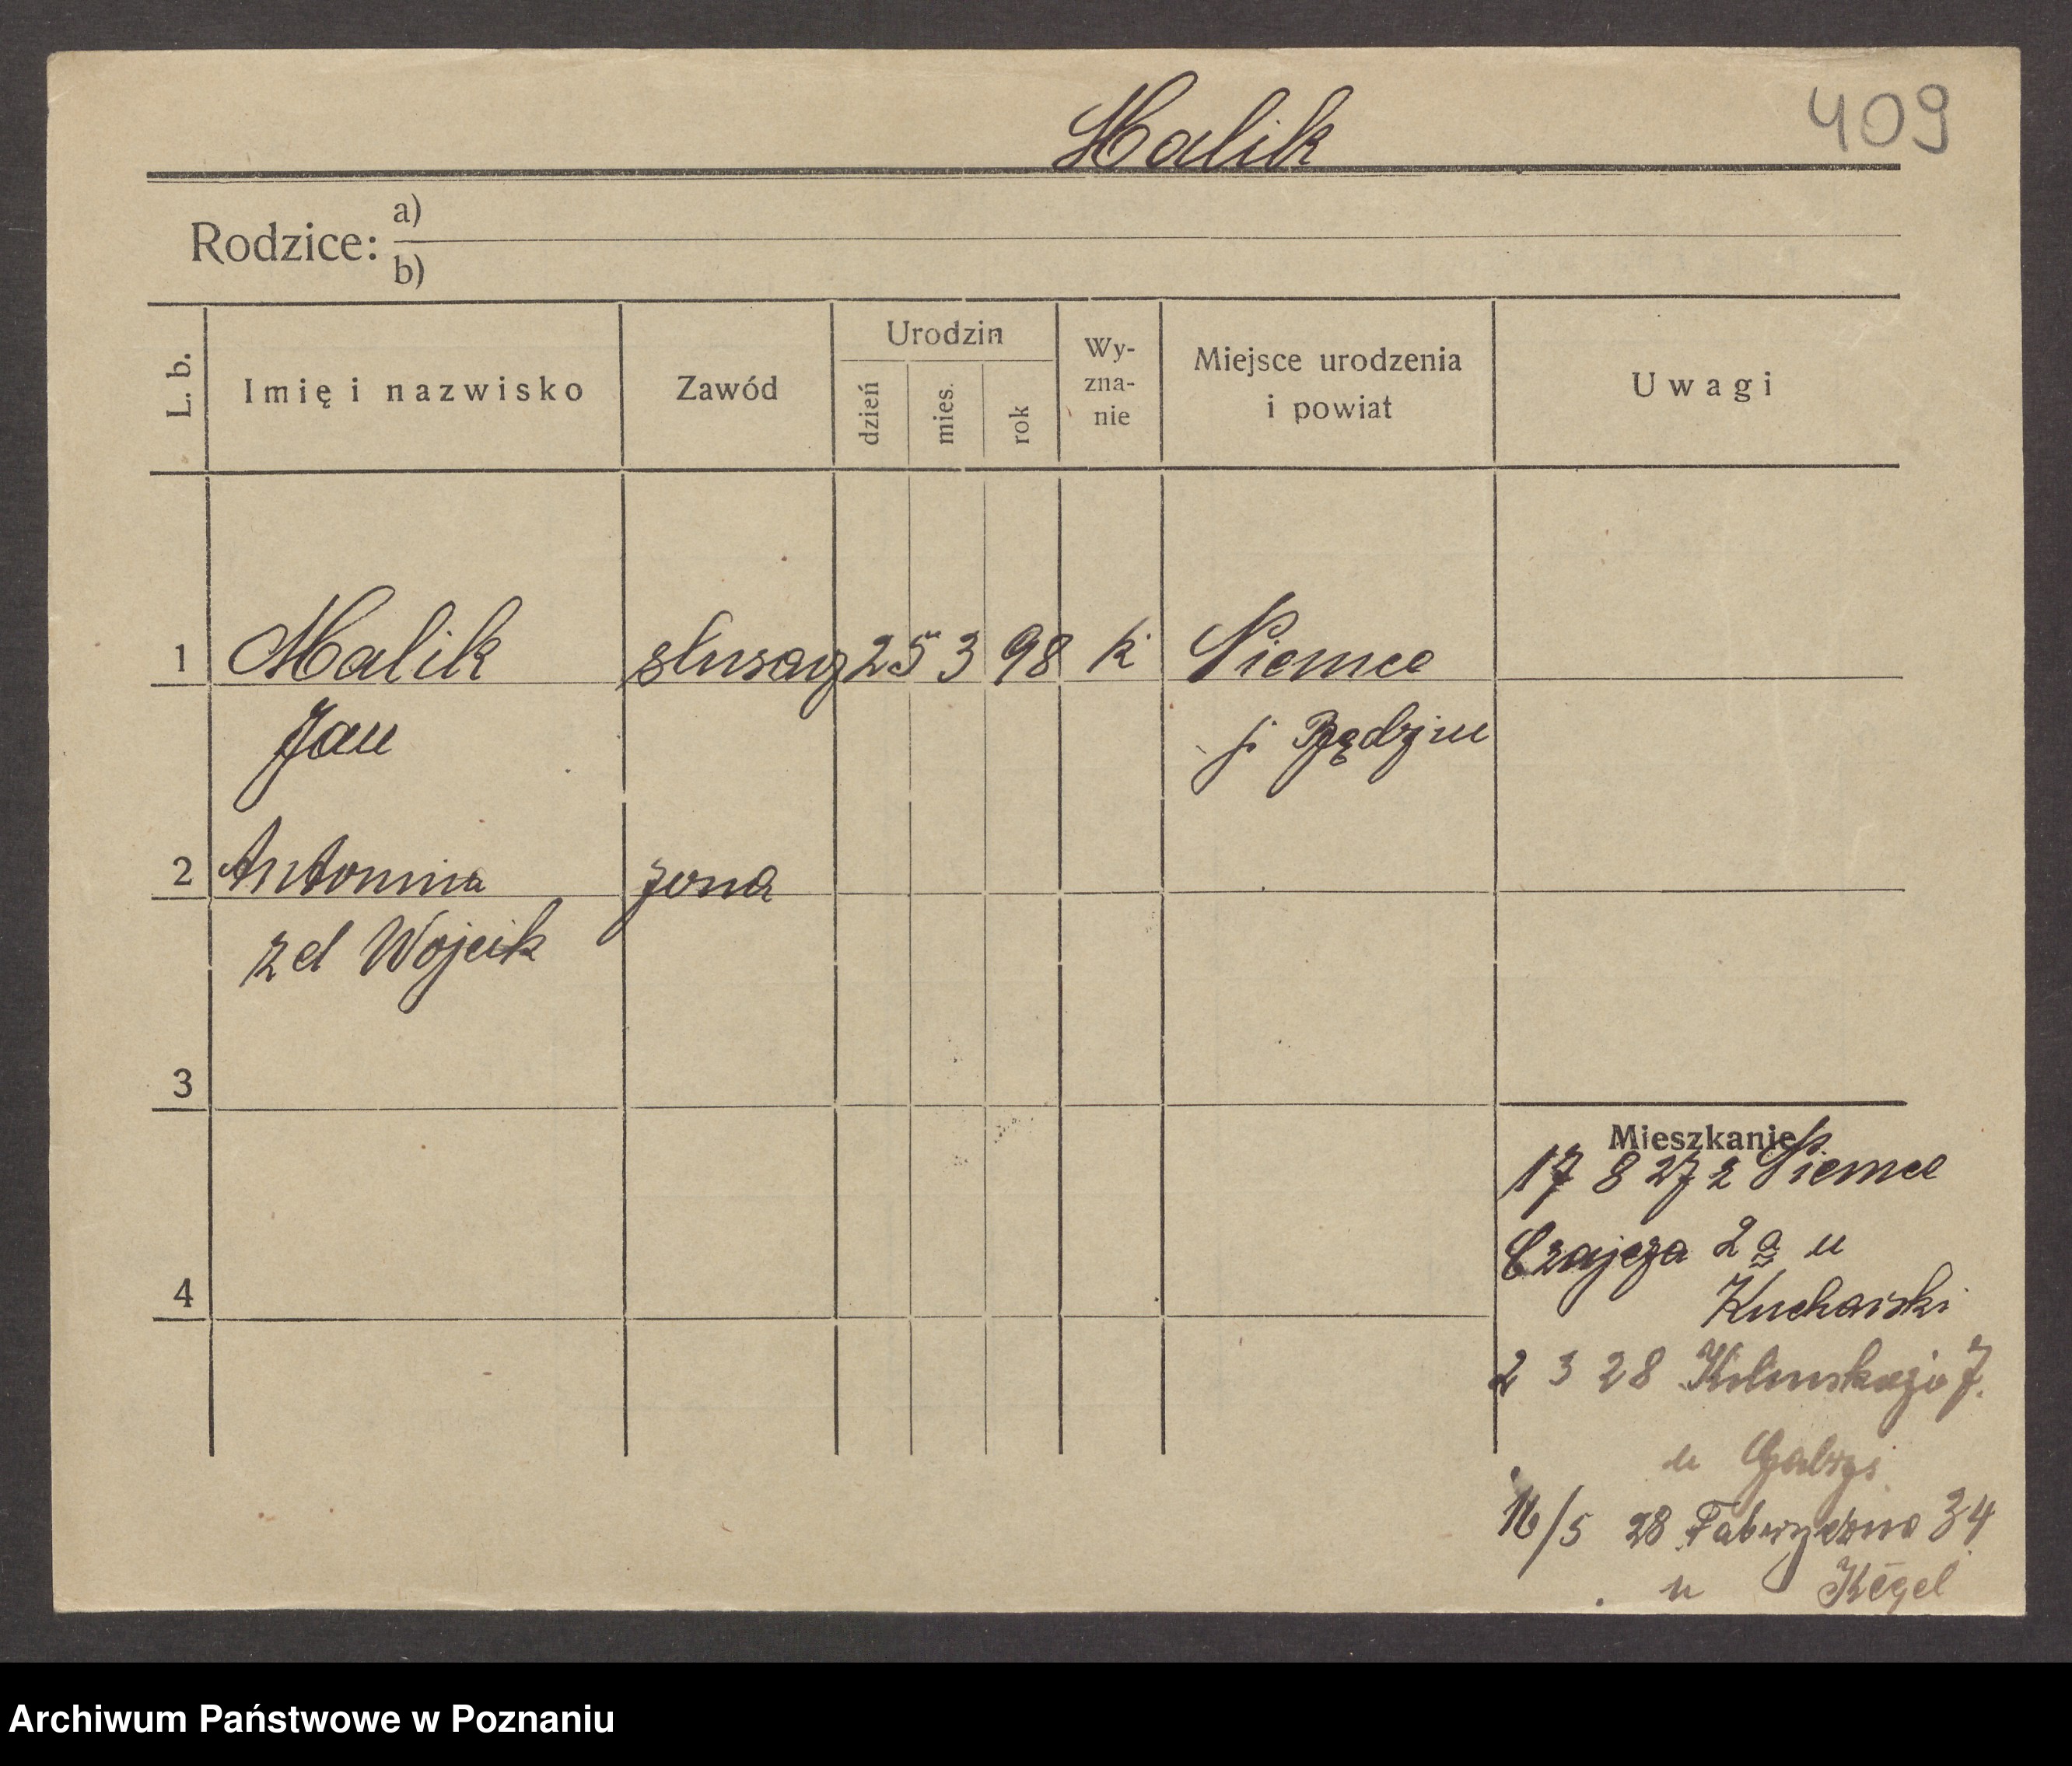 Malik
409
Rodzice: a)
b)
L. b.
Imię i nazwisko
Zawód
Urodzin
dzień
mies.
rok
Wy-
zna-
nie
Miejsce urodzenia
i powiat
Uwagi
1 Malik slusarz 25 3 98 k Siemce
Jan p. Będzin
2 Antonina żona
zd Wojcik
3
4
Mieszkanie
17 8 27 z Siemce
Czajcza 2a u
Kucharski
2 3 28 Kilinskiego 7.
u
16/5 28 Fabryczna 34
u Kegel
Archiwum Państwowe w Poznaniu